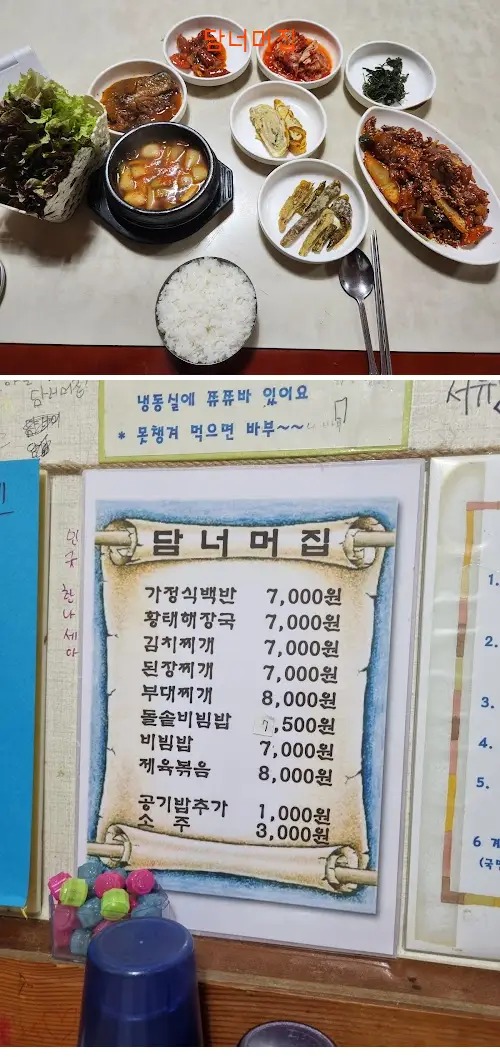 담너머집
담너머집
냉동실에 퓨퓨바 있어요
* 못챙겨 먹으면 바부~~
담 너 머 집
가정식백반 7,000원
황태해장국 7,000원
김치찌개 7,000원
된장찌개 7,000원
부대찌개 8,000원
돌솥비빔밥 7,500원
비빔밥 7,000원
제육볶음 8,000원
공기밥추가 1,000원
소 주 3,000원
1.
2.
3.
4.
5.
6